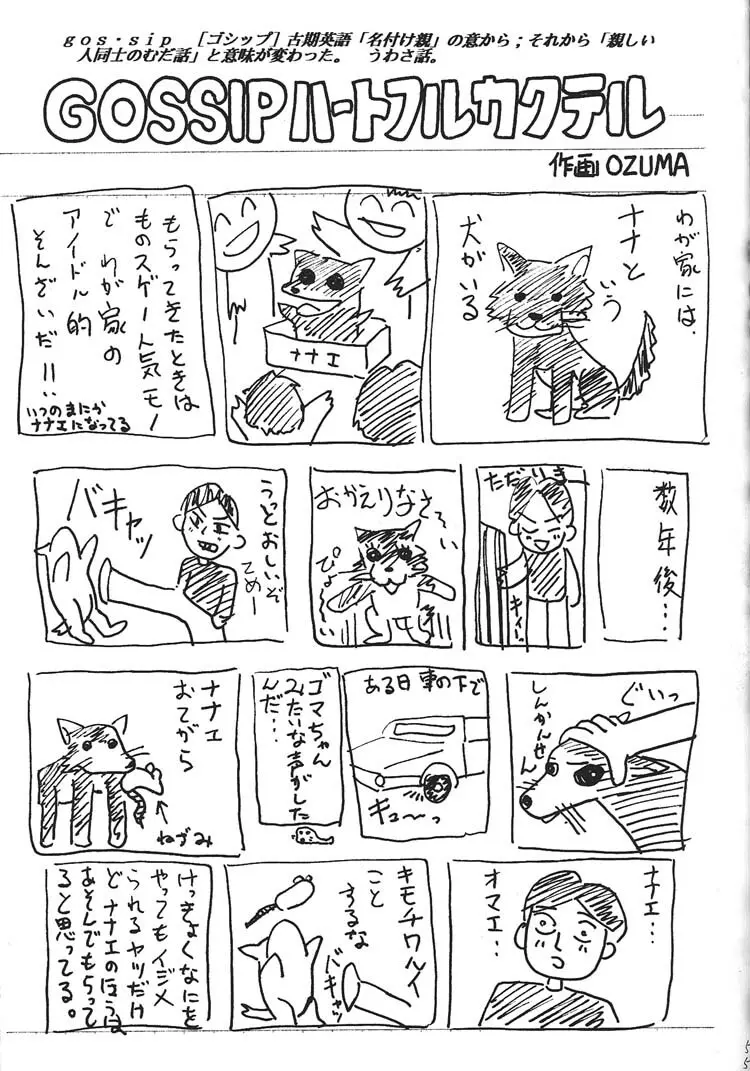 gos・sip　［ゴシップ］古期英語「名付け親」の意から；それから「親しい
人同士のむだ話」と意味が変わった。　うわさ話。
GOSSIPハートフルカクテル
作画 OZUMA
わが家には、
ナナという
犬がいる
ナナエ
もらってきたときは
ものスゲー人気モー
で わが家の
アイドル的
そんざいだ!!…
いつのまにか
ナナエになってる
数年後…
ただいまー
キィー
おかえりなさーい
ぴょーい
うっとおしいぞ
てめー
バキャッ
ぐいっ
しんかんせん
ある日 車の下で
キュ〜っ
ゴマちゃん
みたいな声がした
んだ…
ナナエ
おてがら
ねずみ
ナナエ…
オマエ…
キモチワルイ
こと
するな
バキャッ
けっきょくなにを
やってもイジメ
られるヤツだけ
どナナエのほうは
あそんでもらって
ると思ってる。
5
5